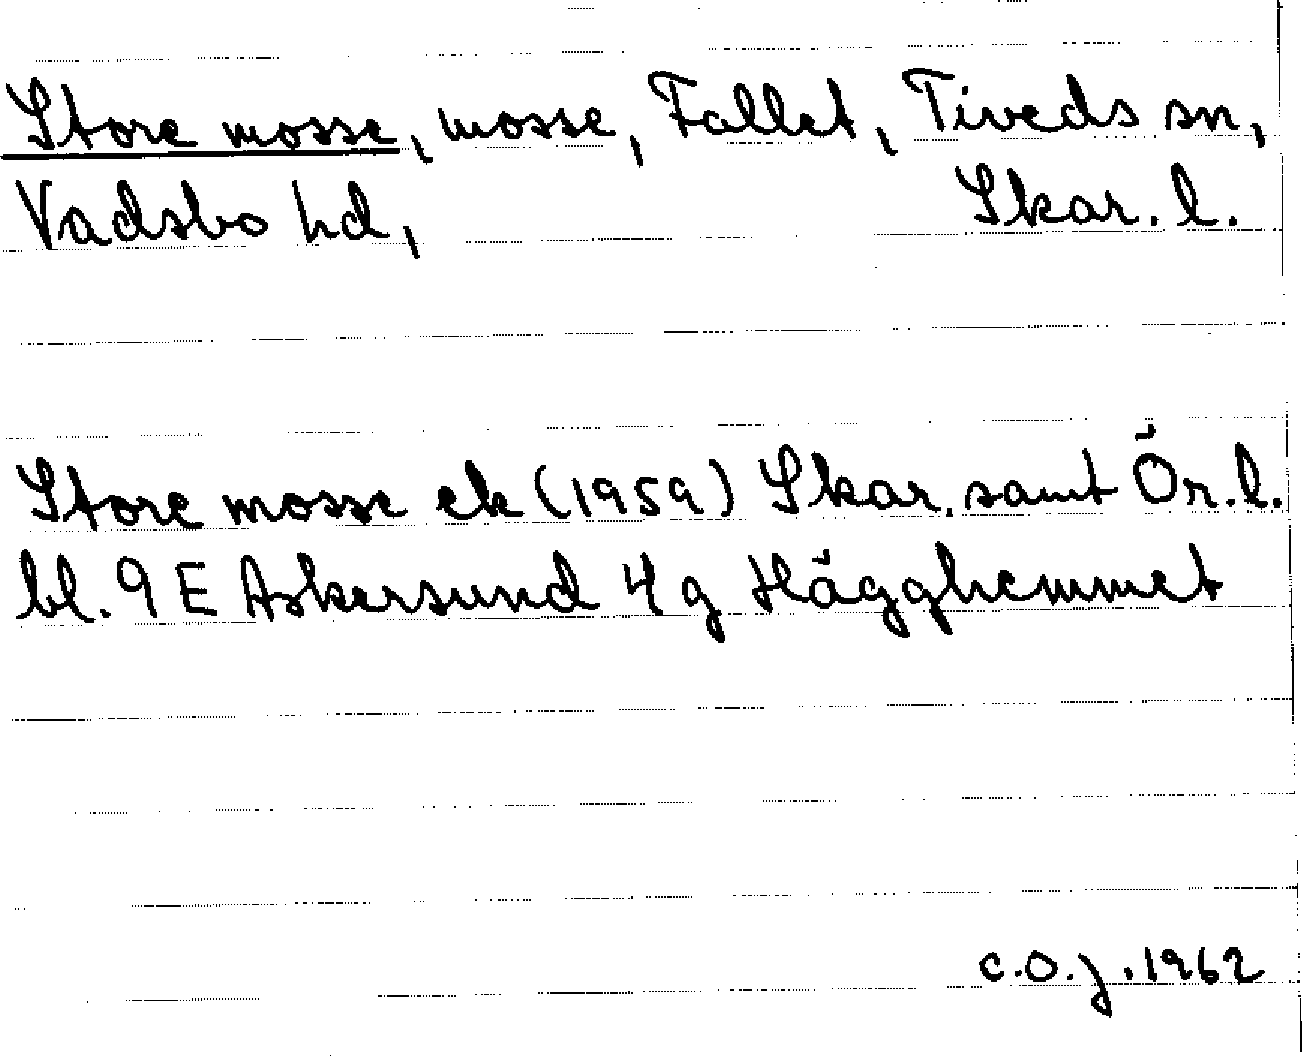 Store mosse, mosse, Fallet, Tiveds sn,
Vadsbo hd, Skar. l.
Store mosse ek (1959) Skar. samt Ör. l.
bl. 9 E Askersund 4 g Hägghemmet
C.O.J. 1962